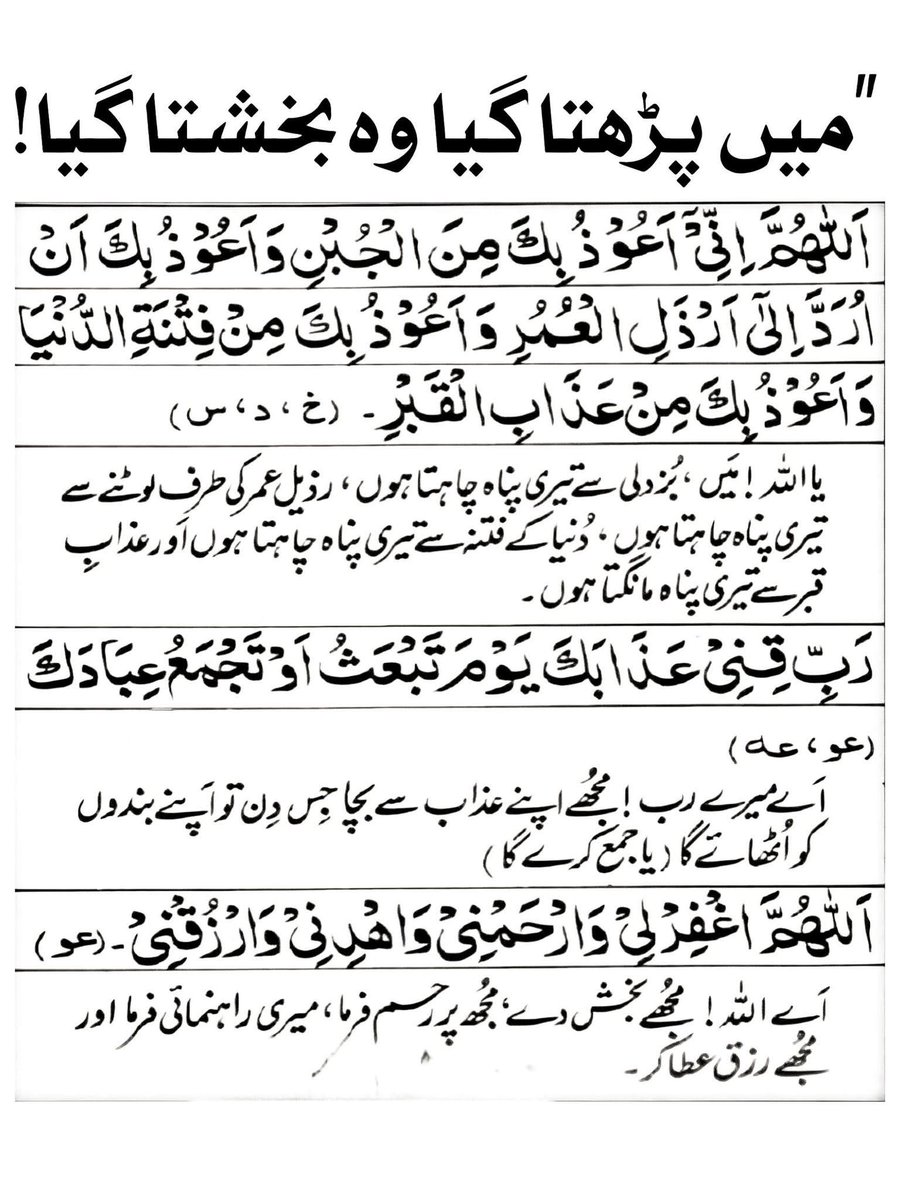 "میں پڑھتا گیا وہ بخشتا گیا!
اَللّٰهُمَّ اِنِّیْٓ اَعُوْذُ بِكَ مِنَ الْجُبْنِ وَاَعُوْذُ بِكَ اَنْ
اُرَدَّ اِلٰٓی اَرْذَلِ الْعُمُرِ وَاَعُوْذُ بِكَ مِنْ فِتْنَةِ الدُّنْیَا
وَاَعُوْذُ بِكَ مِنْ عَذَابِ الْقَبْرِ۔ (خ ، د، س)
یا اللہ! مَیں ، بُزدلی سے تیری پناہ چاہتا ہوں ، رذیل عمر کی طرف لوٹنے سے
تیری پناہ چاہتا ہوں ، دُنیا کے فتنہ سے تیری پناہ چاہتا ہوں اَور عذابِ
قبر سے تیری پناہ مانگتا ہوں۔
رَبِّ قِنِیْ عَذَابَكَ یَوْمَ تَبْعَثُ اَوْ تَجْمَعُ عِبَادَكَ
(عو ، عہ)
اَے میرے رب! مجُھے اپنے عذاب سے بچا جِس دِن تو اَپنے بندوں
کو اُٹھائے گا (یا جمع کرے گا)
اَللّٰهُمَّ اغْفِرْلِیْ وَارْحَمْنِیْ وَاهْدِنِیْ وَارْزُقْنِیْ۔ (عو)
اَے اللہ! مجُھے بخش دے، مجُھ پر رحم فرما، میری راہنمائی فرما اور
مجُھے رزق عطا کر۔